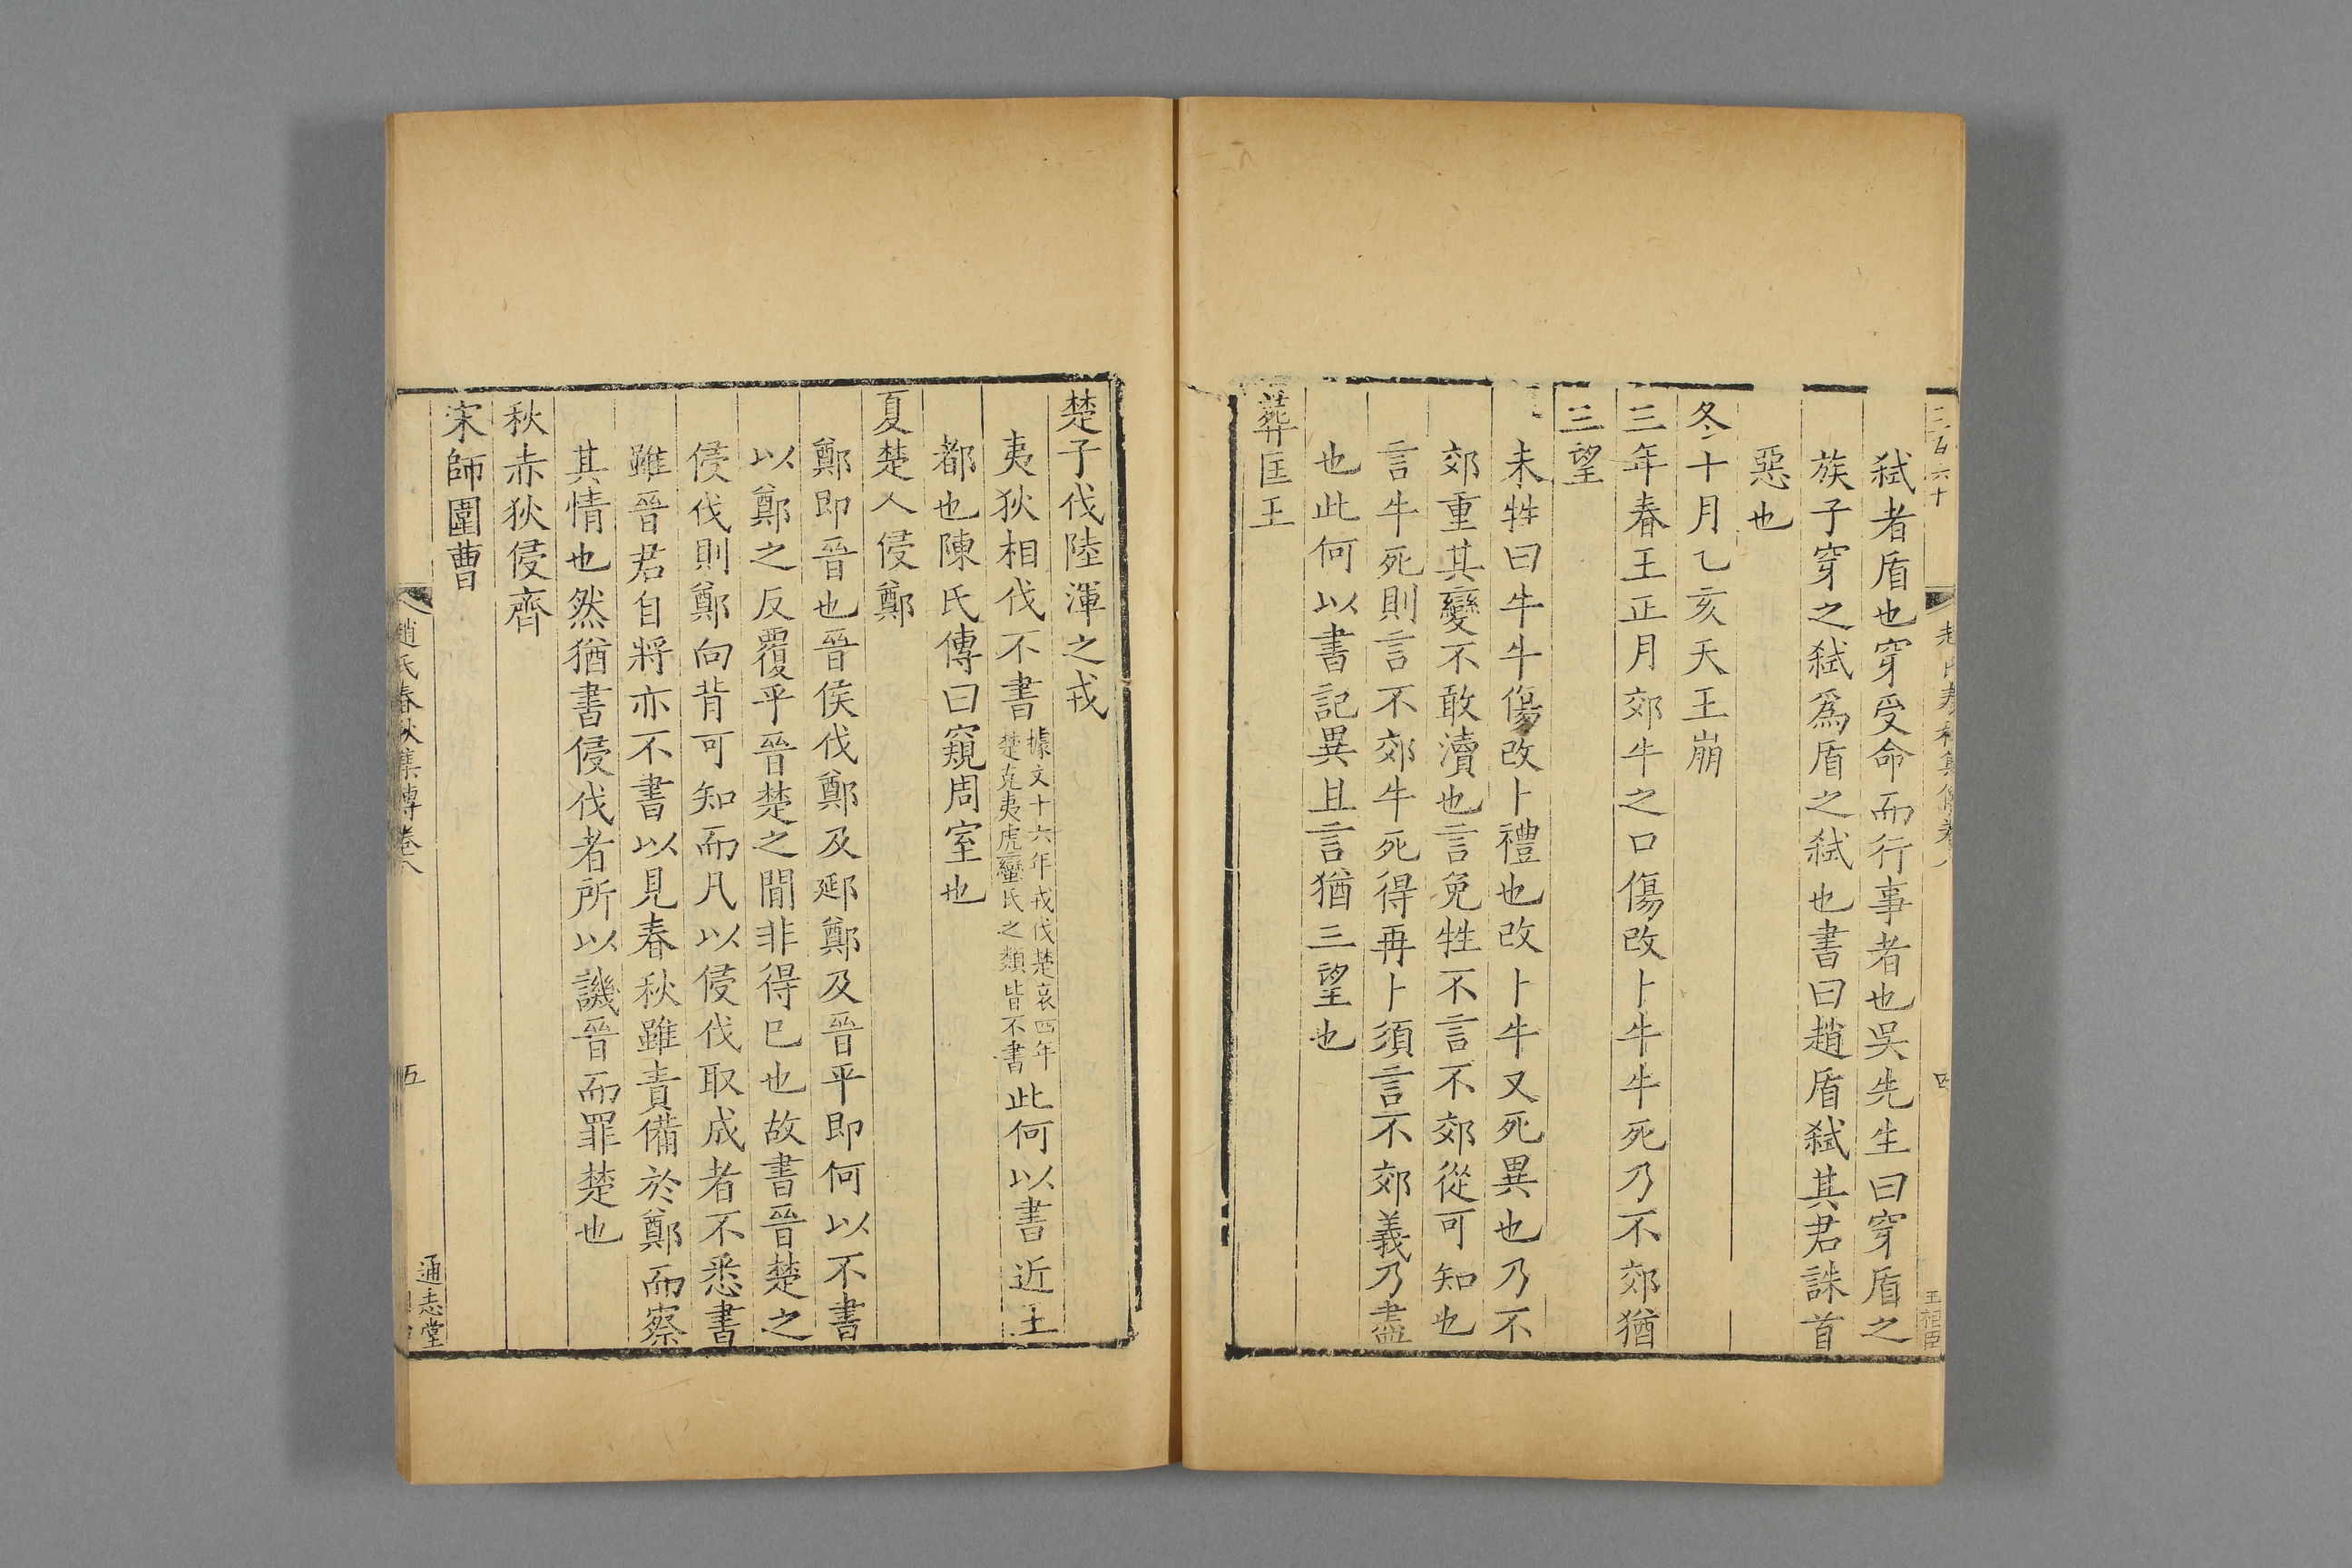 弑者盾也穿受命而行事者也吳先生曰穿盾之
族子穿之弑爲盾之弑也書曰趙盾弑其君誅首
惡也
冬十月乙亥天王崩
三年春王正月郊牛之口傷改卜牛牛死乃不郊猶
三望
未牲曰牛牛傷改卜禮也改卜牛又死異也乃不
郊重其變不敢瀆也言免牲不言不郊從可知也
言牛死則言不郊牛死得再卜須言不郊義乃盡
也此何以書記異且言猶三望也
葬匡王
楚子伐陸渾之戎
夷狄相伐不書據文十六年戎伐楚哀四年楚克夷虎蠻氏之類皆不書此何以書近王
都也陳氏傳曰窺周室也
夏楚人侵鄭
鄭即晉也晉侯伐鄭及郔鄭及晉平即何以不書
以鄭之反覆乎晉楚之閒非得巳也故書晉楚之
侵伐則鄭向背可知而凡以侵伐取成者不悉書
雖晉君自將亦不書以見春秋雖責備於鄭而察
其情也然猶書侵伐者所以譏晉而罪楚也
秋赤狄侵齊
宋師圍曹
趙氏春秋集傳卷八
五
通志堂